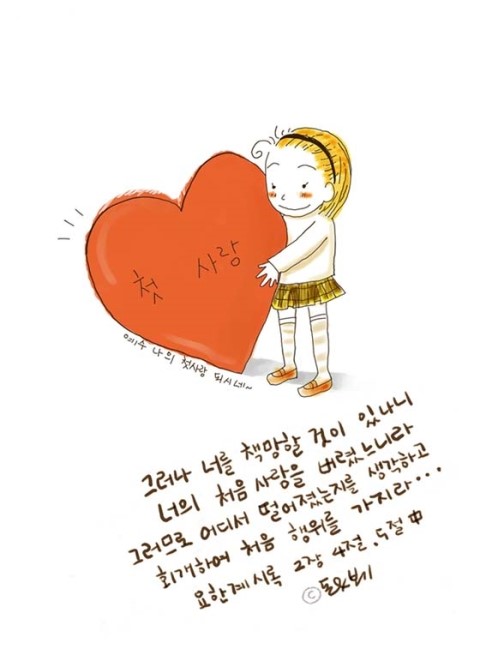 첫 사랑
예수 나의 첫사랑 되시네~
그러나 너를 책망할 것이 있나니
너의 처음 사랑을 버렸느니라
그러므로 어디서 떨어졌는지를 생각하고
회개하여 처음 행위를 가지라...
요한계시록 2장 4절.5절 中